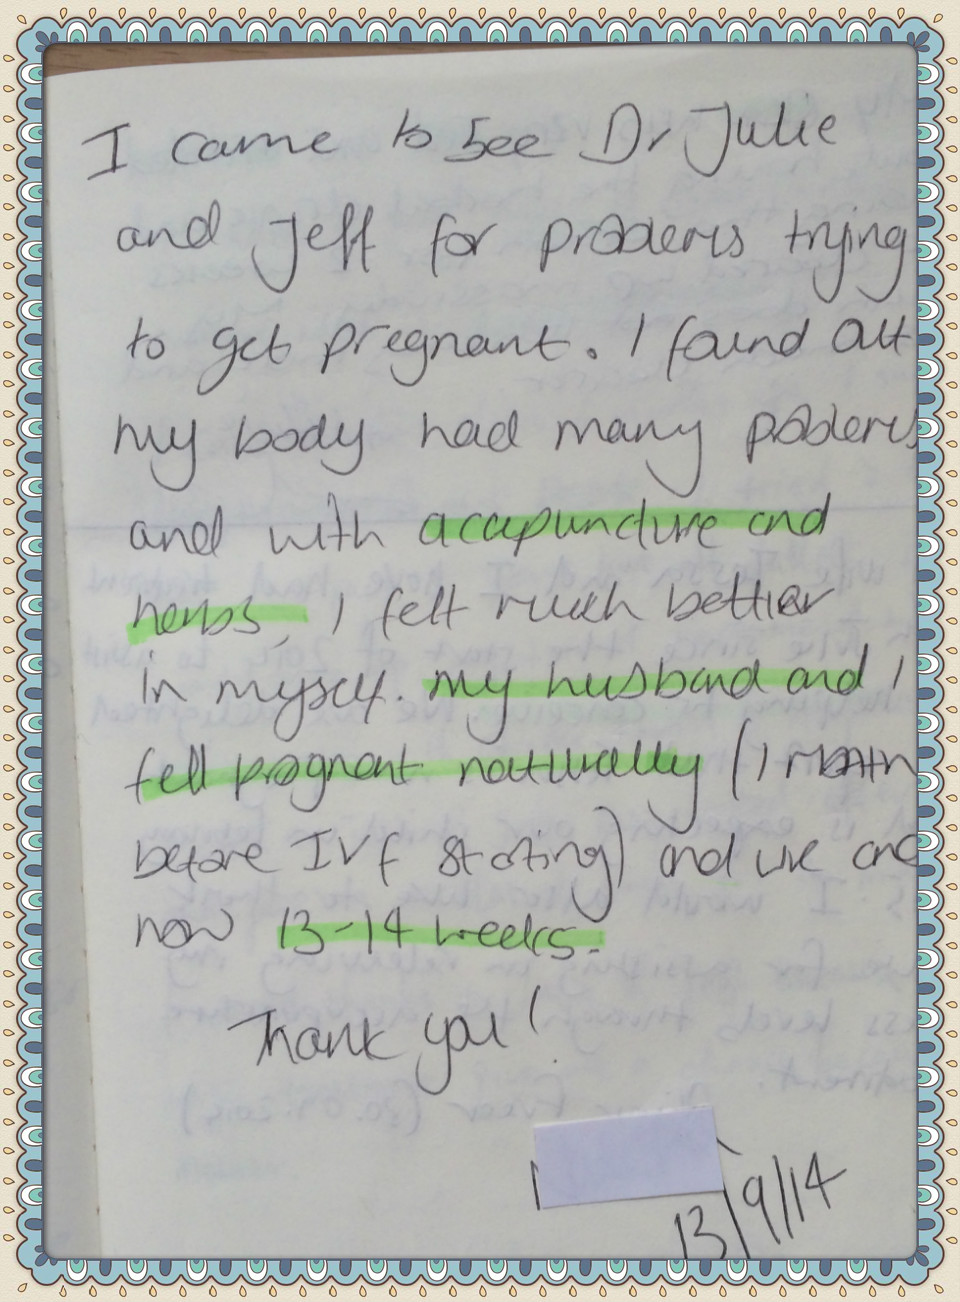 I came to see Dr Julie
and Jeff for problems trying
to get pregnant. I found out
my body had many problems
and with acupuncture and
herbs, I felt much better
in myself. my husband and I
fell pregnant naturally (1 month
before IVF starting) and we are
now 13-14 weeks.
Thank you!
13/9/14